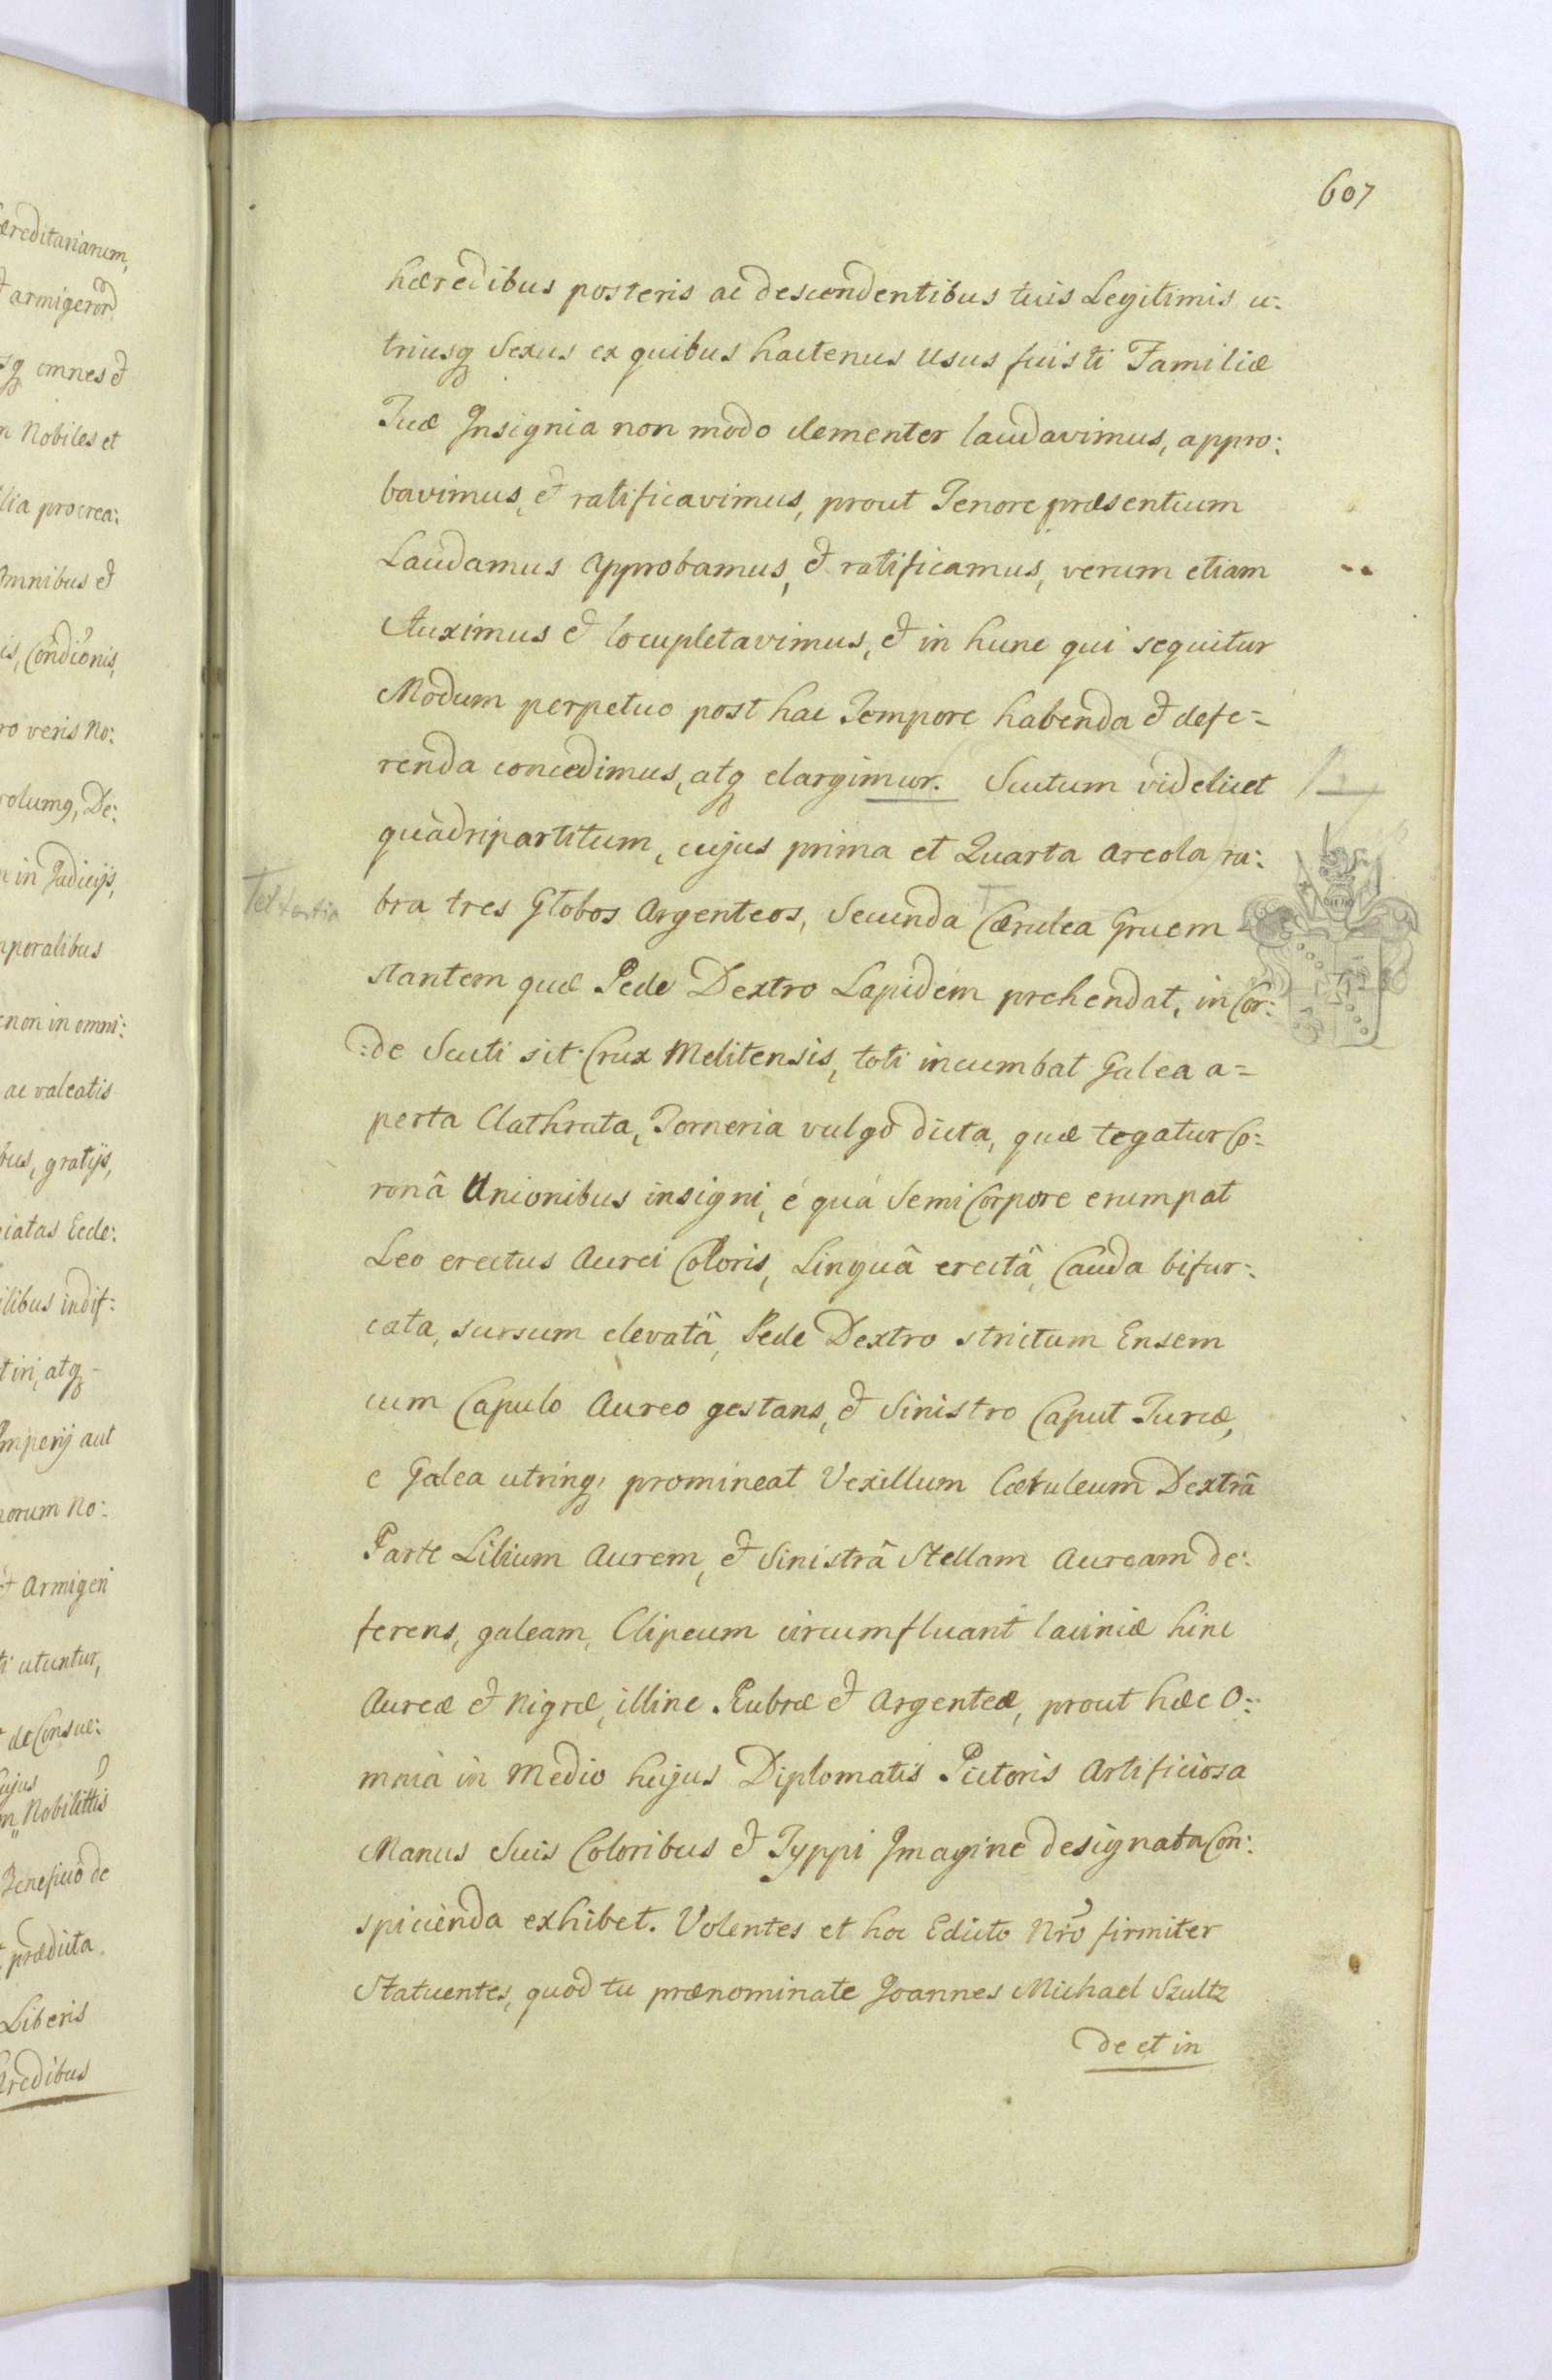 607
hæredibus posteris ac descendentibus tuis Legitimis u:
triusq Sexus ex quibus hactenus Usus fuisti Familiæ
Tuæ Insignia non modo clementer laudavimus, appro:
bavimus, et ratificavimus, prout Tenore præsentium
Laudamus Approbamus, et ratificamus, verum etiam
Auximus et locupletavimus, et in hunc qui sequitur
Modum perpetuo post hac Tempore habenda et defe=
renda concedimus, atq elargimur. Scutum videlicet
quadripartitum, cujus prima et Quarta Areola ru:
bra tres Globos Argenteos, Secunda Cærulea Gruem
et tertia
stantem quæ Pede Dextro Lapidem prehendat, in Cor:
:de Scuti sit Crux Melitensis, toti incumbat Galea a=
perta Clathrata, Torneria vulgo dicta, quæ tegatur Co:
ronâ Unionibus insigni, é quá Semi Corpore erumpat
Leo erectus Aurei Coloris, Linguâ erectâ, Cauda bifur:
cata, sursum elevatâ, Pede Dextro strictum Ensem
cum Capulo Aureo gestans, et Sinistro Caput Turcæ,
e Galea utrinq, promineat Vexillum Cœruleum Dextrâ
Parte Lilium Aurem, et Sinistrâ Stellam Auream de:
ferens, galeam, Clipeum circumfluant laciniæ hinc
Aureæ et Nigræ, illinc Rubræ et Argenteæ, prout hæc O:
mnia in Medio hujus Diplomatis Pictoris Artificiosa
Manus Suis Coloribus et Typpi Imagine designata Con:
spicienda exhibet. Volentes et hoc Edicto Nro firmiter
Statuentes, quod tu prænominate Joannes Michael Szultz
de et in
æreditariarum,
armigeror
sq omnes et
Nobiles et
lia procrea:
Omnibus et
is, Condionis,
ro veris No:
in Judicijs,
mporalibus
non in omni:
ac valeatis
bus, gratijs,
ciatas Eccle:
libus indif:
tiri, atq
Imperij aut
norum No:
et Armigeri
ti utuntur,
de Consue:
hujus
Nobilittis
Beneficio de
prædicta
Liberis
hæredibus